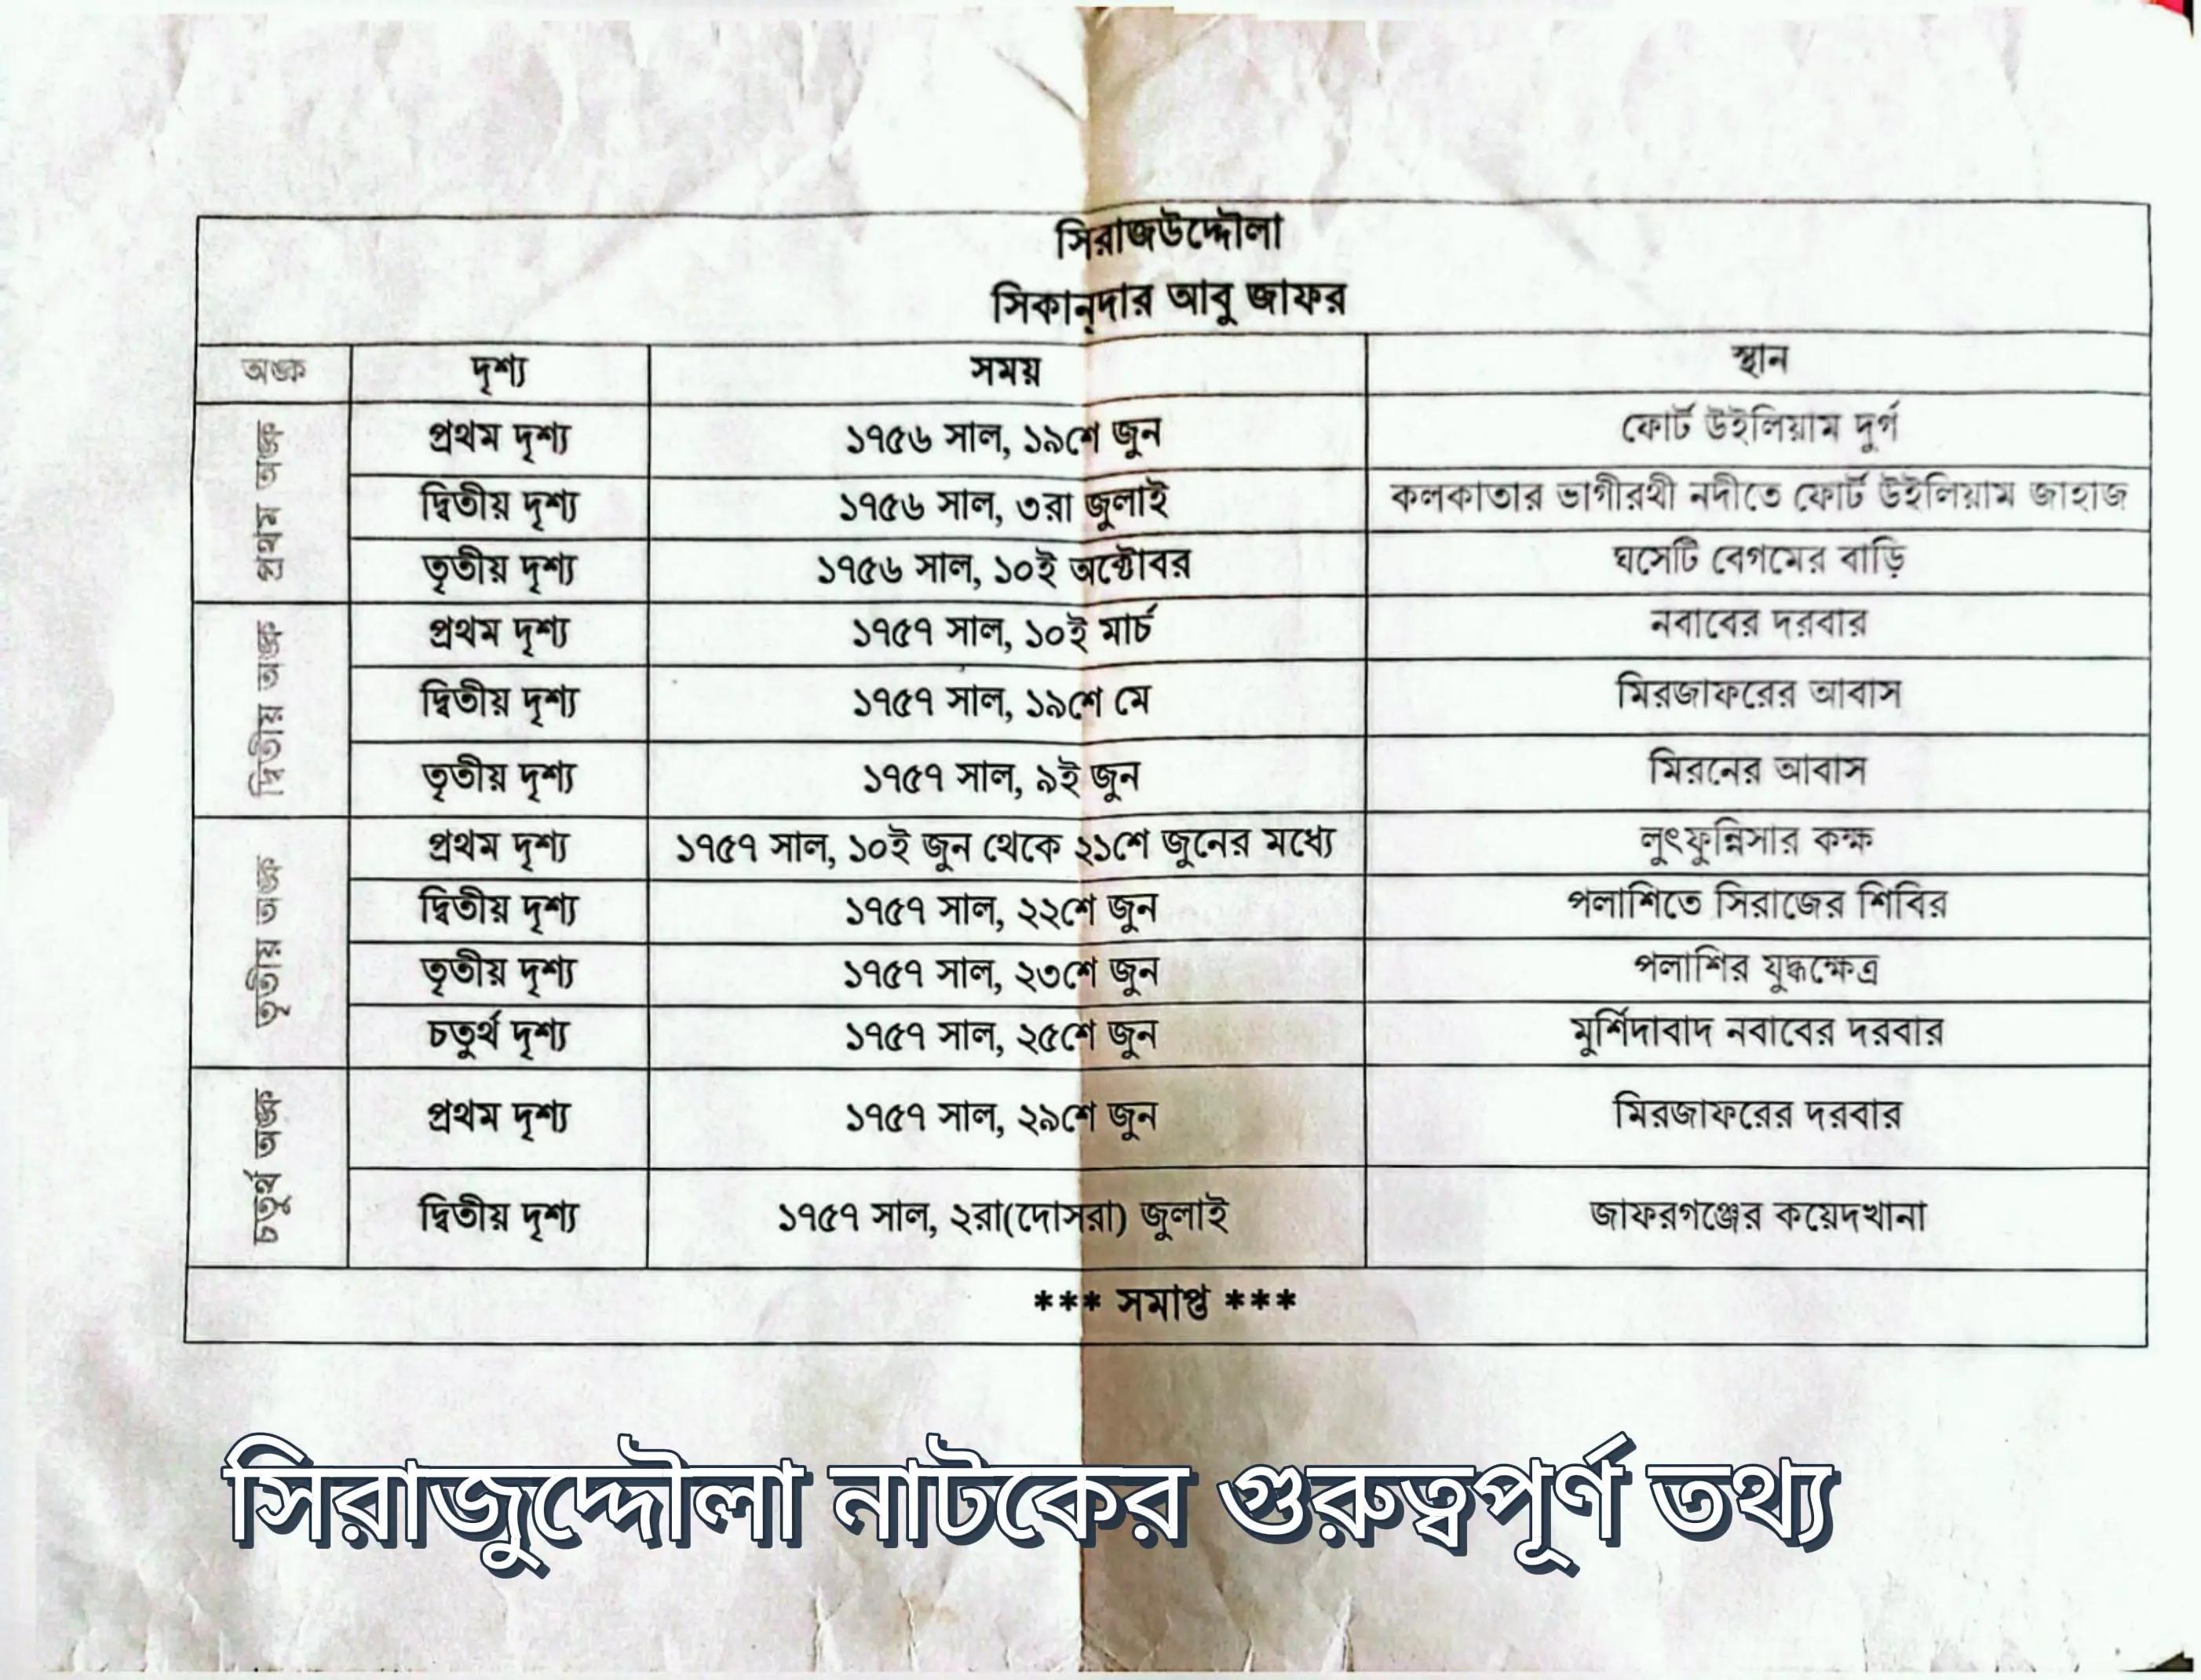 সিরাজউদ্দৌলা
সিকান্‌দার আবু জাফর
অঙ্ক দৃশ্য সময় স্থান
প্রথম অঙ্ক
প্রথম দৃশ্য ১৭৫৬ সাল, ১৯শে জুন ফোর্ট উইলিয়াম দুর্গ
দ্বিতীয় দৃশ্য ১৭৫৬ সাল, ৩রা জুলাই কলকাতার ভাগীরথী নদীতে ফোর্ট উইলিয়াম জাহাজ
তৃতীয় দৃশ্য ১৭৫৬ সাল, ১০ই অক্টোবর ঘসেটি বেগমের বাড়ি
দ্বিতীয় অঙ্ক
প্রথম দৃশ্য ১৭৫৭ সাল, ১০ই মার্চ নবাবের দরবার
দ্বিতীয় দৃশ্য ১৭৫৭ সাল, ১৯শে মে মিরজাফরের আবাস
তৃতীয় দৃশ্য ১৭৫৭ সাল, ৯ই জুন মিরনের আবাস
তৃতীয় অঙ্ক
প্রথম দৃশ্য ১৭৫৭ সাল, ১০ই জুন থেকে ২১শে জুনের মধ্যে লুৎফুন্নিসার কক্ষ
দ্বিতীয় দৃশ্য ১৭৫৭ সাল, ২২শে জুন পলাশিতে সিরাজের শিবির
তৃতীয় দৃশ্য ১৭৫৭ সাল, ২৩শে জুন পলাশির যুদ্ধক্ষেত্র
চতুর্থ দৃশ্য ১৭৫৭ সাল, ২৫শে জুন মুর্শিদাবাদ নবাবের দরবার
চতুর্থ অঙ্ক
প্রথম দৃশ্য ১৭৫৭ সাল, ২৯শে জুন মিরজাফরের দরবার
দ্বিতীয় দৃশ্য ১৭৫৭ সাল, ২রা(দোসরা) জুলাই জাফরগঞ্জের কয়েদখানা
*** সমাপ্ত ***
সিরাজুদ্দৌলা নাটকের গুরুত্বপূর্ণ তথ্য